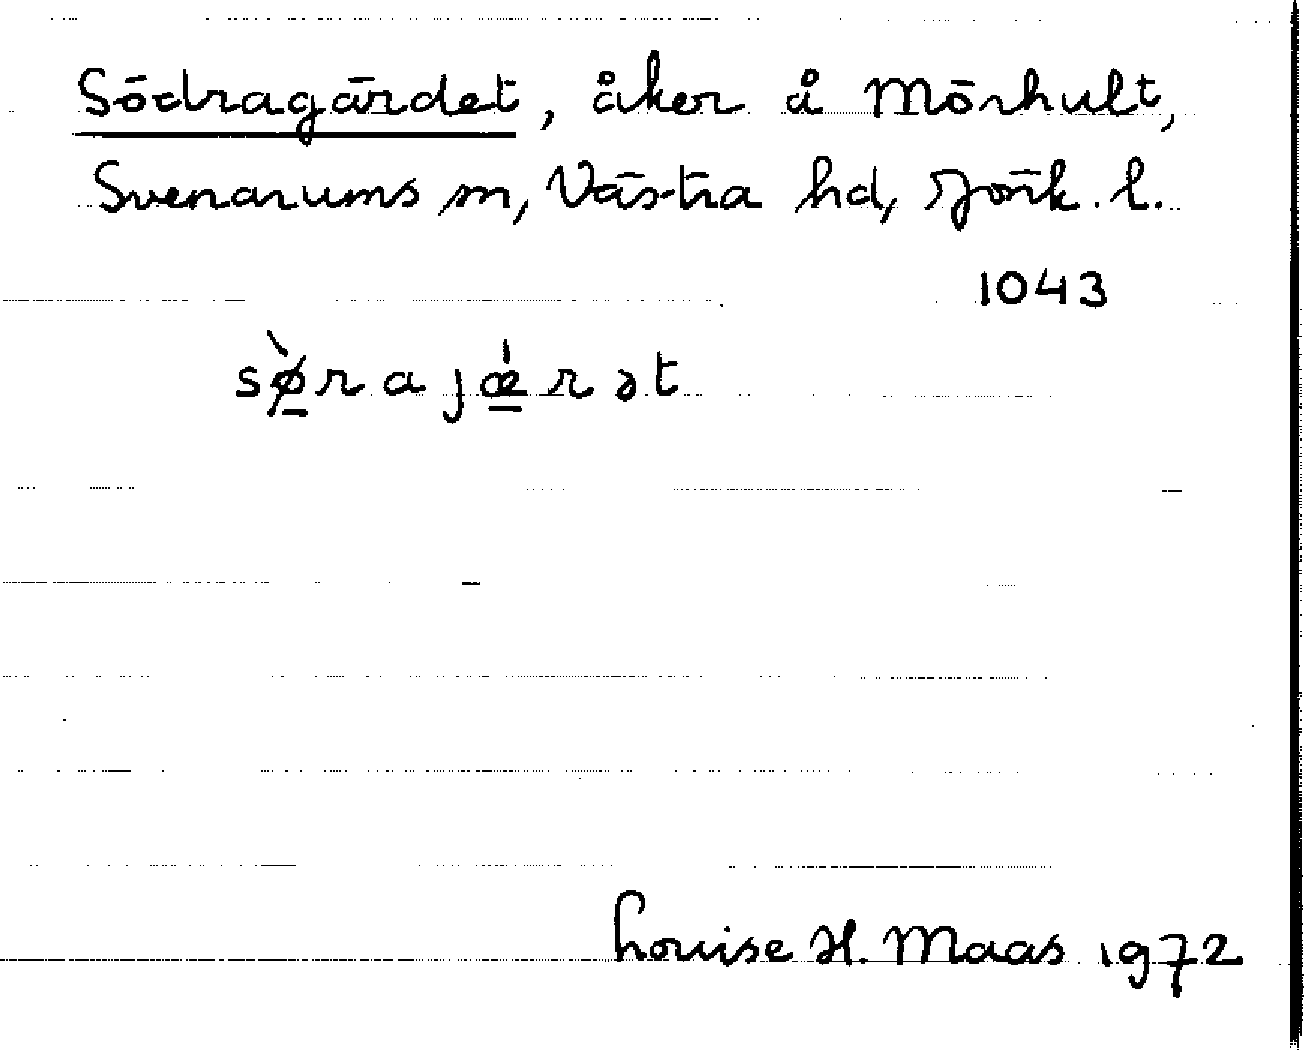 Södragärdet, åker å Mörhult,
Svenarums sn, Västra hd, Jönk. l.
1043
sø̀rajœ́rət
Louise H. Maas 1972